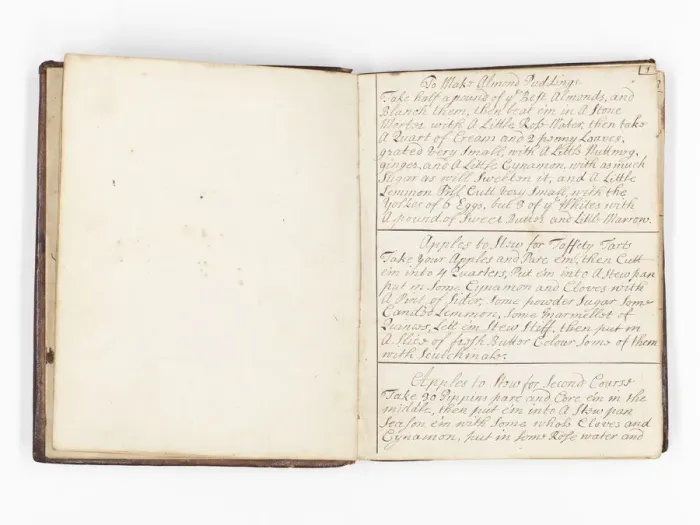 1
To Make Almond Puddings
Take half a pound of yᵉ Best Almonds, and
Blanch them, then beat em in A Stone
Morter with A Little Rose Water, then take
A Quart of Cream and 2 penny Loaves,
grated Very Small, with A Little Nuttmeg,
ginger, and A Little Cynamon, with as much
Sugar as will Sweeten it, and A Little
Lemmon Pill Cutt Very Small, with the
Yolkes of 6 Eggs, but 3 of yᵉ Whites with
A pound of Sweet Butter and Little Marrow.
Apples to Stew for Taffety Tarts
Take Your Apples and Pare em, then Cutt
em into 4 Quarters, Put em into A Stew pan
put in Some Cynamon and Cloves with
A Pint of Sider, Some powder Sugar Some
Candod Lemmon, Some Marmellet of
Quinces, Lett em Stew Stiff, then put in
A Slice of fresh Butter Colour Some of them
with Scutchinale.
Apples to Stew for Second Course
Take 20 Pippins pare and Core em in the
middle, then put em into A Stew pan
Season em with Some whole Cloves and
Cynamon, put in Some Rose water and